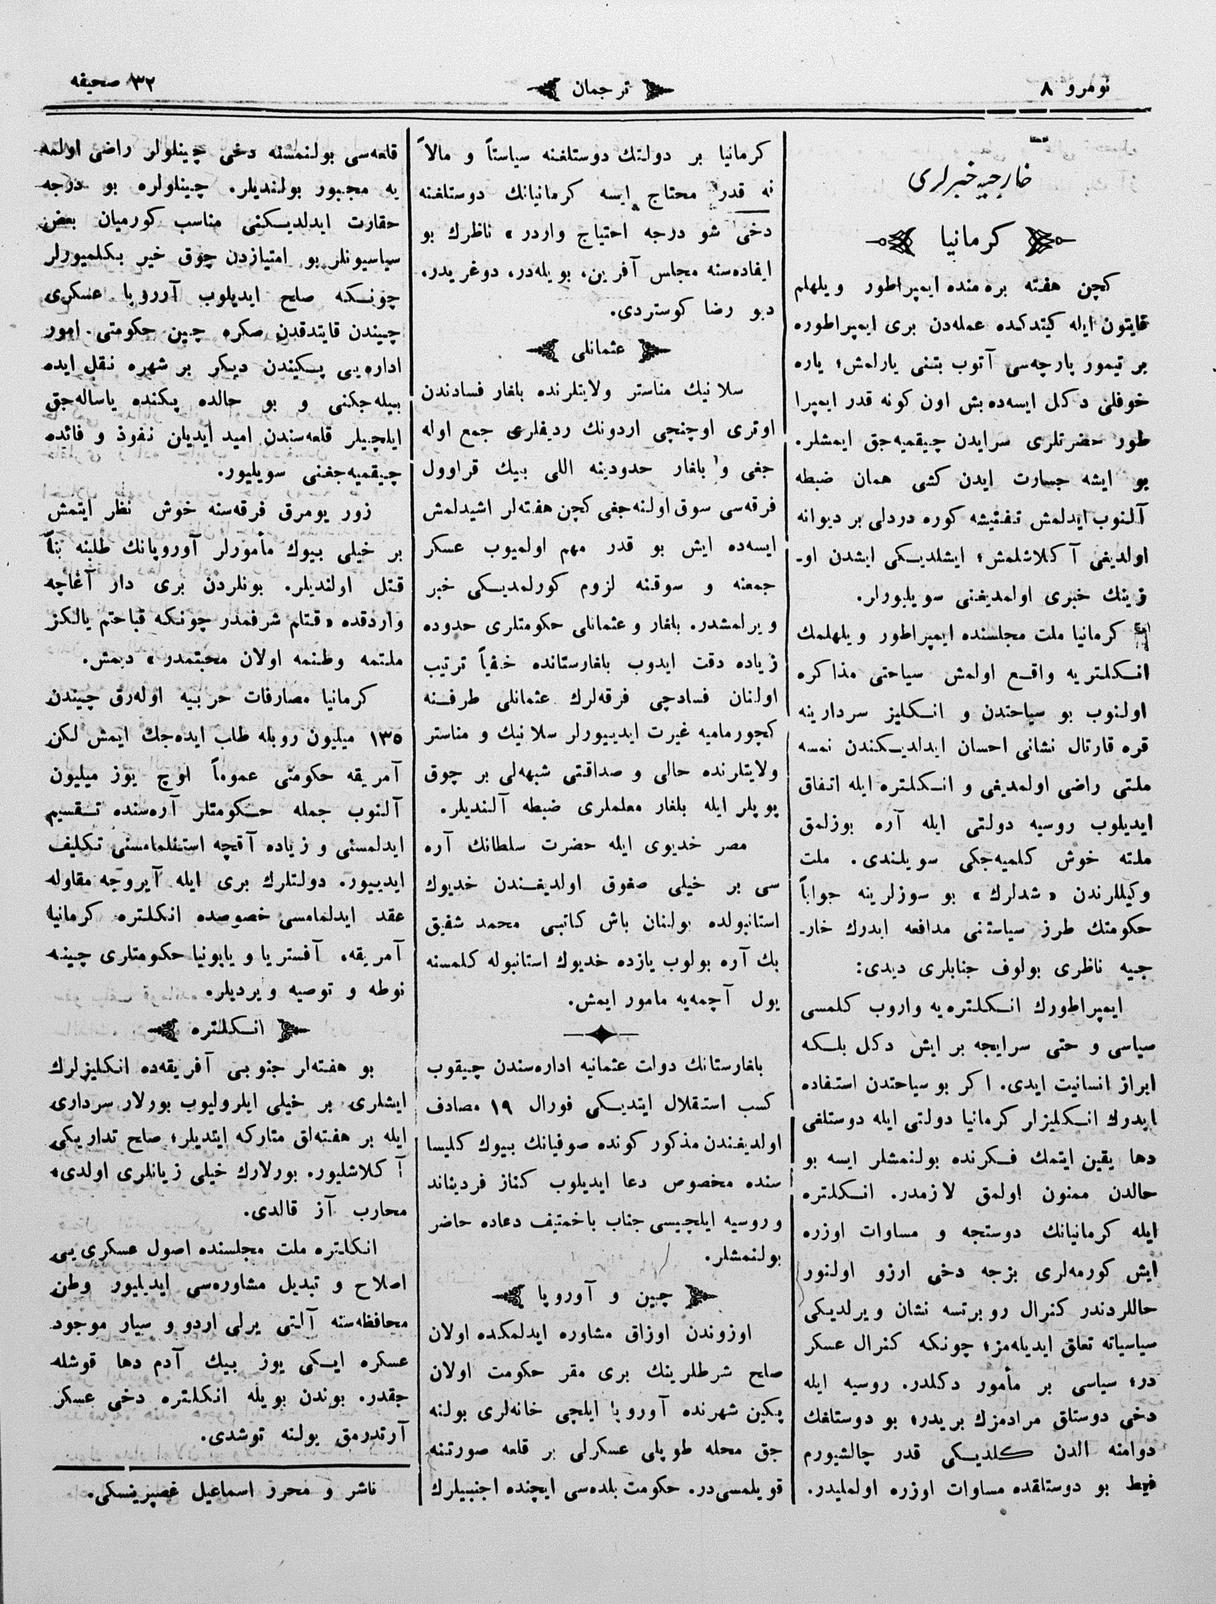 نومرو ٨
ترجمان
٣٢ صحیفه
خارجیه خبرلری
كرمانیا
كچن هفته بره‌منده ایمپراطور ویلهلم
قایتون ایله كیتدكده عمله‌دن بری ایمپراطوره
بر تیمور پارچه‌سی آتوب بتنی یارلمش؛ یاره
خوفلی دكل ایسه‌ده بش اون كونه قدر ایمپرا
طور حضرتلری سرایدن چیقمیه‌جق ایمشلر.
بو ایشه جسارت ایدن كشی همان ضبطه
آلنوب ایدلمش تفتیشه كوره دردلی بر دیوانه
اولدیغی آكلاشلمش؛ ایشلدیكی ایشدن او-
زینك خبری اولمدیغنی سویلیورلر.
كرمانیا ملت مجلسنده ایمپراطور ویلهلمك
انكلتریه واقع اولمش سیاحتی مذاكره
اولنوب بو سیاحتدن و انكلیز سردارینه
قره قارتال نشانی احسان ایدلدیكندن نمسه
ملتی راضی اولمدیغی و انكلتره ایله اتفاق
ایدیلوب روسیه دولتی ایله آره بوزلمق
ملته خوش كلمیه‌جكی سویلندی. ملت
وكیللرندن «شدلرك» بو سوزلرینه جواباً
حكومتك طرز سیاستنی مدافعه ایدرك خار-
جیه ناظری بولوف جنابلری دیدی:
ایمپراطورك انكلتره‌یه واروب كلمسی
سیاسی و حتی سرایجه بر ایش دكل بلكه
ابراز انسانیت ایدی. اكر بو سیاحتدن استفاده
ایدرك انكلیزلر كرمانیا دولتی ایله دوستلغی
دها یقین ایتمك فكرنده بولنمشلر ایسه بو
حالدن ممنون اولمق لازمدر. انكلتره
ایله كرمانیانك دوستجه و مساوات اوزره
ایش كورمه‌لری بزجه دخی ارزو اولنور
حاللردندر كنرال روبرتسه نشان ویرلدیكی
سیاسیاته تعلق ایدیله‌مز؛ چونكه كنرال عسكر
در؛ سیاسی بر مأمور دكلدر. روسیه ایله
دخی دوستلق مرادمزك بریدر؛ بو دوستلغك
دوامنه الدن كلدیكی قدر چالشیورم
فقط بو دوستلقده مساوات اوزره اولملیدر.
كرمانیا بر دولتك دوستلغنه سیاستاً و مالاً
نه قدر محتاج ایسه كرمانیانك دوستلغنه
دخی شو درجه احتیاج واردر» ناظرك بو
ایفاده‌سنه مجلس آفرین، بویله‌در، دوغریدر،
دیو رضا كوستردی.
عثمانلی
سلانیك مناستر ولایتلرنده بلغار فسادندن
اوتری اوچنچی اردونك ردیفلری جمع اوله
جغی و بلغار حدودینه اللی بیك قراوول
فرقه‌سی سوق اولنه‌جغی كچن هفته‌لر اشیدلمش
ایسه‌ده ایش بو قدر مهم اولمیوب عسكر
جمعنه و سوقنه لزوم كورلمدیكی خبر
ویرلمشدر. بلغار و عثمانلی حكومتلری حدوده
زیاده دقت ایدوب بلغارستانده خفیاً ترتیب
اولنان فسادچی فرقه‌لرك عثمانلی طرفنه
كچورمامیه غیرت ایدییورلر سلانیك و مناستر
ولایتلرنده حالی و صداقتی شبهه‌لی بر چوق
پوپلر ایله بلغار معلملری ضبطه آلندیلر.
مصر خدیوی ایله حضرت سلطانك آره
سی بر خیلی صفوق اولدیغندن خدیوك
استانبولده بولنان باش كاتبی محمد شفیق
بك آره بولوب یازده خدیوك استانبوله كلمسنه
یول آچمه‌یه مامور ایمش.
بلغارستانك دولت عثمانیه اداره‌سندن چیقوب
كسب استقلال ایتدیكی فورال ١٩ مصادف
اولدیغندن مذكور كونده صوفیانك بیوك كلیسا
سنده مخصوص دعا ایدیلوب كناز فردیناند
و روسیه ایلچیسی جناب باخمتیف دعاده حاضر
بولنمشلر.
چین و آوروپا
اوزوندن اوزاق مشاوره ایدلمكده اولان
صلح شرطلرینك بری مقر حكومت اولان
پكین شهرنده آوروپا ایلچی خانه‌لری بولنه
جق محله طوپلی عسكرلی بر قلعه صورتنه
قویلمسی‌در. حكومت بلده‌سی ایچنده اجنبیلرك
قلعه‌سی بولنمسنه دخی چینلولر راضی اولمه
یه مجبور بولندیلر. چینلولره بو درجه
حقارت ایدلدیكنی مناسب كورمیان بعض
سیاسیونلر بو امتیازدن چوق خیر بكلمیورلر
چونكه صلح ایدیلوب آوروپا عسكری
چیندن قایتدقدن صكره چین حكومتی امور
اداره‌یی پكیندن دیكر بر شهره نقل ایده
بیله‌جكنی و بو حالده پكنده یاساله‌جق
ایلچیلر قلعه‌سندن امید ایدیان نفوذ و فائده
چیقمیه‌جغنی سویلیور.
زور یومرق فرقه‌سنه خوش نظر ایتمش
بر خیلی بیوك مأمورلر آوروپانك طلبنه بناً
قتل اولندیلر. بونلردن بری دار آغاچه
واردقده «قتلم شرفمدر چونكه قباحتم یالكز
ملتمه وطنمه اولان محبتمدر» دیمش.
كرمانیا مصارفات حربیه اوله‌رق چیندن
١٣٥ میلیون روبله طلب ایده‌جك ایمش لكن
آمریقه حكومتی عموماً اوچ یوز میلیون
آلنوب جمله حكومتلر آره‌سنده تقسیم
ایدلمسنی و زیاده آقچه استنلمامسنی تكلیف
ایدییور. دولتلرك بری ایله آیروجه مقاوله
عقد ایدلمامسی خصوصده انكلتره كرمانیا
آمریقه، آفستریا و یاپونیا حكومتلری چینه
نوطه و توصیه ویردیلر.
انكلتره
بو هفته‌لر جنوبی آفریقه‌ده انكلیزلرك
ایشلری بر خیلی ایلرولیوب بورلار سرداری
ایله بر هفته‌لق متاركه ایتدیلر؛ صلح تداریكی
آكلاشلیوره بورلارك خیلی زیانلری اولدی؛
محارب آز قالدی.
انكلتره ملت مجلسنده اصول عسكری‌یی
اصلاح و تبدیل مشاوره‌سی ایدیلیور وطن
محافظه‌سنه آلتی یرلی اردو و سیار موجود
عسكره ایكی یوز بیك آدم دها قوشله
جقدر. بوندن بویله انكلتره دخی عسكر
آرتدرمق یولنه توشدی.
ناشر و محرر اسماعیل غصپرینسكی.